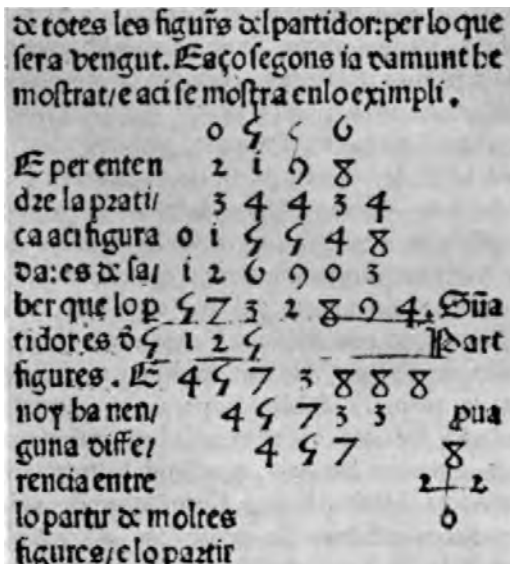 de totes les figur̃s del partidor: per lo que
sera vengut. E aço segons ia damunt he
mostrat/ e aci se mostra enlo eximpli.
0 5 5 6
E per enten 2 i 9 8
dre la prati/ 3 4 4 3 4
ca aci figura 0 i 5 5 4 8
da: es de sa/ i 2 6 9 0 3
ber que lo p 5 7 3 2 8 9 4. Sũa
tidor es d 5 1 2 5 Part
figures. E 4 5 7 3 8 8 8
noy ha nen/ 4 5 7 3 3 pua
guna diffe/ 4 5 7 8
rencia entre 2 2
lo partir de moltes 0
figures/ e lo partir